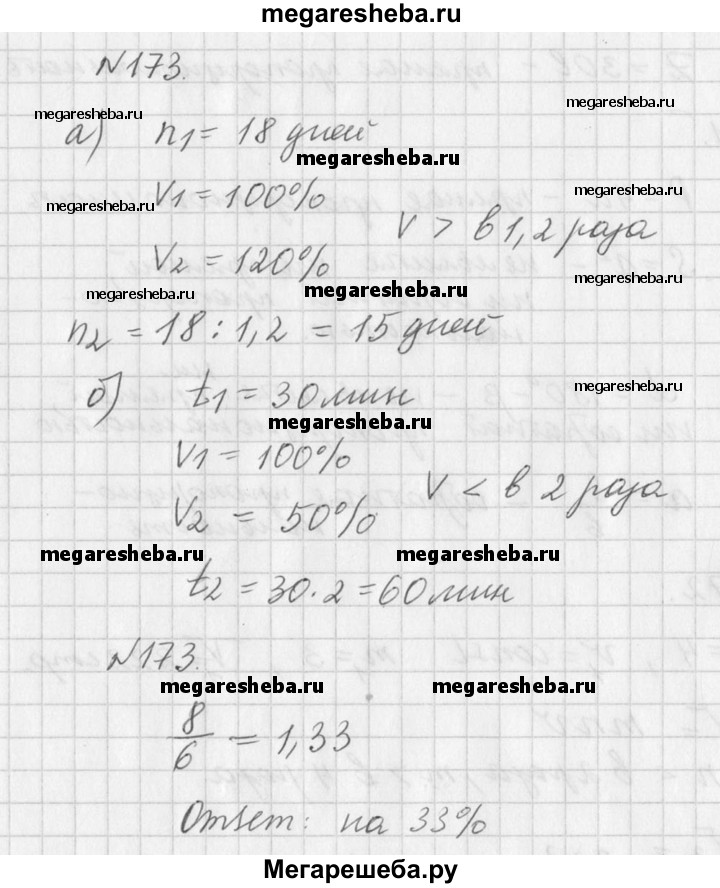 megaresheba.ru
N173.
megaresheba.ru
megaresheba.ru
а) n1 = 18 дней
megaresheba.ru
V1 = 100%
megaresheba.ru
megaresheba.ru
V > в 1,2 раза
V2 = 120%
megaresheba.ru
megaresheba.ru
megaresheba.ru
n2 = 18 : 1,2 = 15 дней
б) t1 = 30 мин
megaresheba.ru
megaresheba.ru
V1 = 100%
V < в 2 раза
V2 = 50%
megaresheba.ru
megaresheba.ru
t2 = 30 · 2 = 60 мин
N173.
megaresheba.ru
megaresheba.ru
8/6 = 1,33
Ответ: на 33%
Мегарешеба.ру